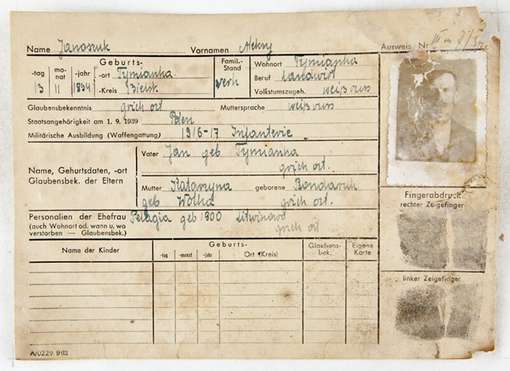 Name Janosiuk Vornamen Aleksy Ausweis Nr.
Geburts- Famil.-Stand Wohnort Tymianka
-tag mo-nat -jahr -ort Tymianka Beruf Landwirt
13 11 1894 -Kreis Bielsk verh Volkstumszugeh. weißruss
Glaubensbekenntnis griech ort Muttersprache weißruss
Staatsangehörigkeit am 1. 9. 1939 Polen
Militärische Ausbildung (Waffengattung) 1916-17 Infanterie
Name, Geburtsdaten, -ort
Glaubensbek. der Eltern
Vater Jan geb Tymianka
griech ort.
Mutter Katarzyna geborene
geb Wolka griech ort.
Personalien der Ehefrau Pelagia geb 1900
(auch Wohnort od. wann u. wo
verstorben — Glaubensbek.) griech ort
Name der Kinder Geburts- Glaubens-bek. Eigene Karte
-tag -monat -jahr Ort (Kreis)
Fingerabdruck
rechter Zeigefinger
linker Zeigefinger